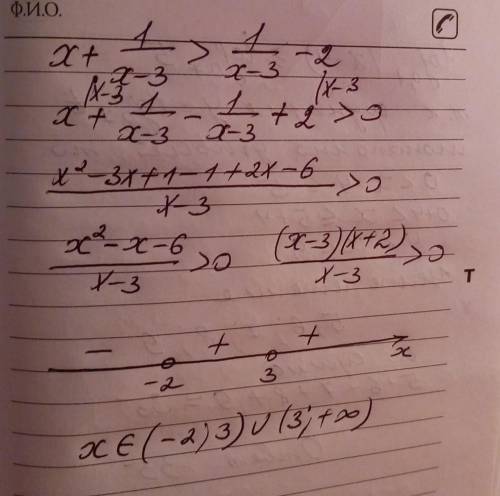 Ф.И.О.
x + 1/(x-3) > 1/(x-3) - 2
x + 1/(x-3) - 1/(x-3) + 2 > 0
(x-3 (x-3
(x² - 3x + 1 - 1 + 2x - 6)/(x-3) > 0
(x² - x - 6)/(x-3) > 0 (x-3)(x+2)/(x-3) > 0
т
- + +
-2 3 x
x ∈ (-2; 3) ∪ (3; +∞)